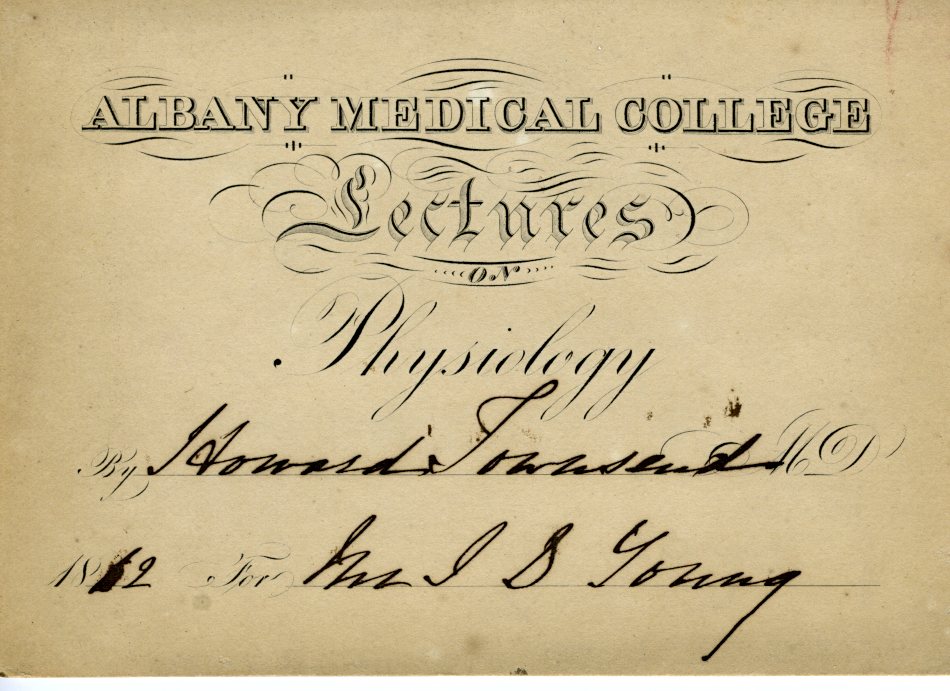 ALBANY MEDICAL COLLEGE
Lectures
ON
Physiology
By Howard Townsend M.D
1862 For Mr Young